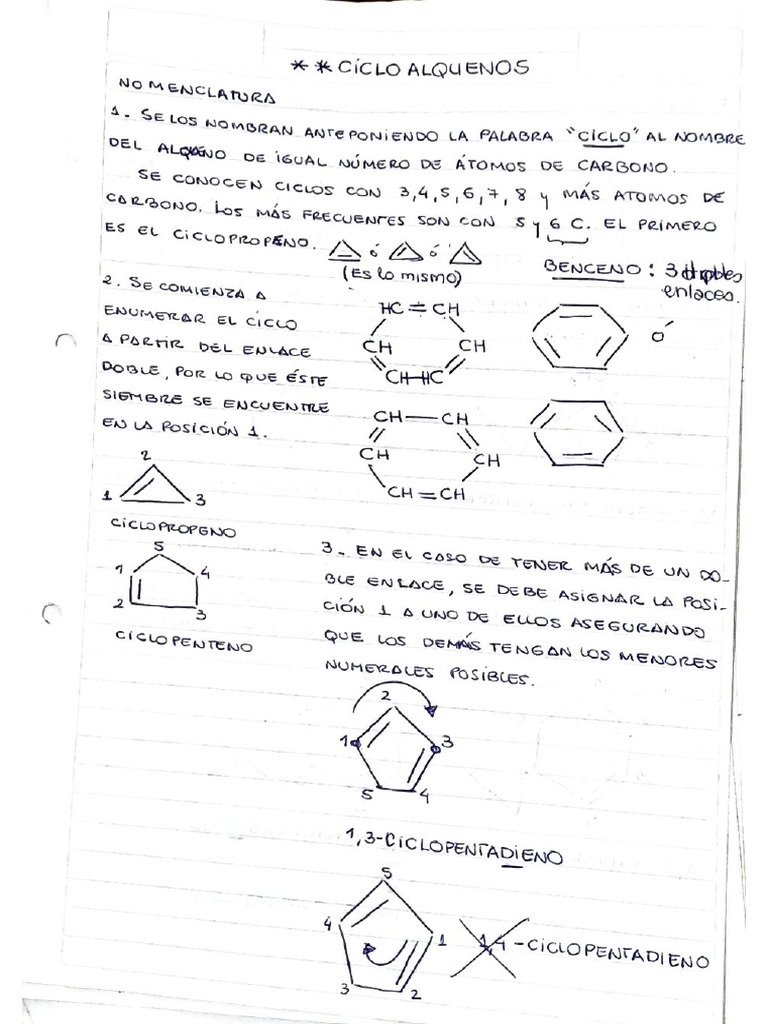 ** CÍCLO ALQUENOS
NOMENCLATURA
1. SE LOS NOMBRAN ANTEPONIENDO LA PALABRA "CÍCLO" AL NOMBRE
DEL ALQUENO DE IGUAL NÚMERO DE ÁTOMOS DE CARBONO.
SE CONOCEN CICLOS CON 3,4,5,6,7,8 y MÁS ATOMOS DE
CARBONO. LOS MÁS FRECUENTES SON CON 5 y 6 C. EL PRIMERO
ES EL CICLOPROPENO. ó ó
(Es lo mismo)
BENCENO: 3 dobles
enlaces.
2. SE COMIENZA A
ENUMERAR EL CICLO
A PARTIR DEL ENLACE
DOBLE, POR LO QUE ÉSTE
SIEMBRE SE ENCUENTRE
EN LA POSICIÓN 1.
HC = CH
CH CH
CH-HC
ó
CH — CH
CH CH
CH = CH
2
1 3
CICLOPROPENO
5
1 4
2 3
CICLOPENTENO
3. EN EL CASO DE TENER MÁS DE UN DO-
BLE ENLACE, SE DEBE ASIGNAR LA POSI-
CIÓN 1 A UNO DE ELLOS ASEGURANDO
QUE LOS DEMÁS TENGAN LOS MENORES
NUMERALES POSIBLES.
2
1 3
5 4
1,3-CICLOPENTADIENO
5
4 1
3 2
1,4-CICLOPENTADIENO